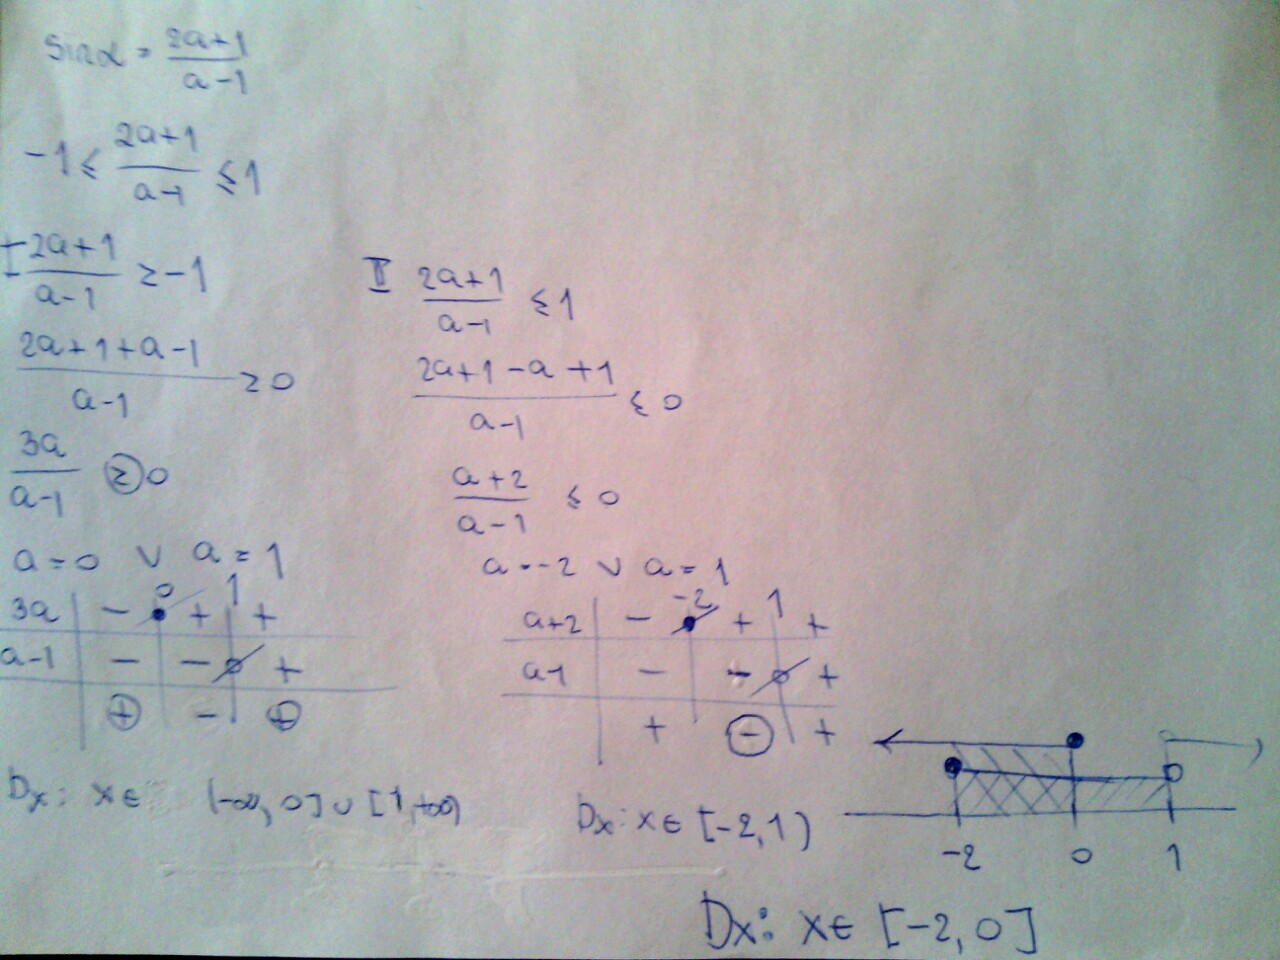 sin α = (2a+1)/(a-1)
-1 ≤ (2a+1)/(a-1) ≤ 1
I (2a+1)/(a-1) ≥ -1
(2a+1+a-1)/(a-1) ≥ 0
3a/(a-1) ≥ 0
a=0 ∨ a=1
0 1
3a - + +
a-1 - - +
+ - +
Dx: x∈ (-∞, 0] ∪ [1, +∞)
II (2a+1)/(a-1) ≤ 1
(2a+1-a+1)/(a-1) ≤ 0
(a+2)/(a-1) ≤ 0
a=-2 ∨ a=1
-2 1
a+2 - + +
a-1 - - +
+ - +
Dx: x∈ [-2, 1)
-2 0 1
Dx: x∈ [-2, 0]